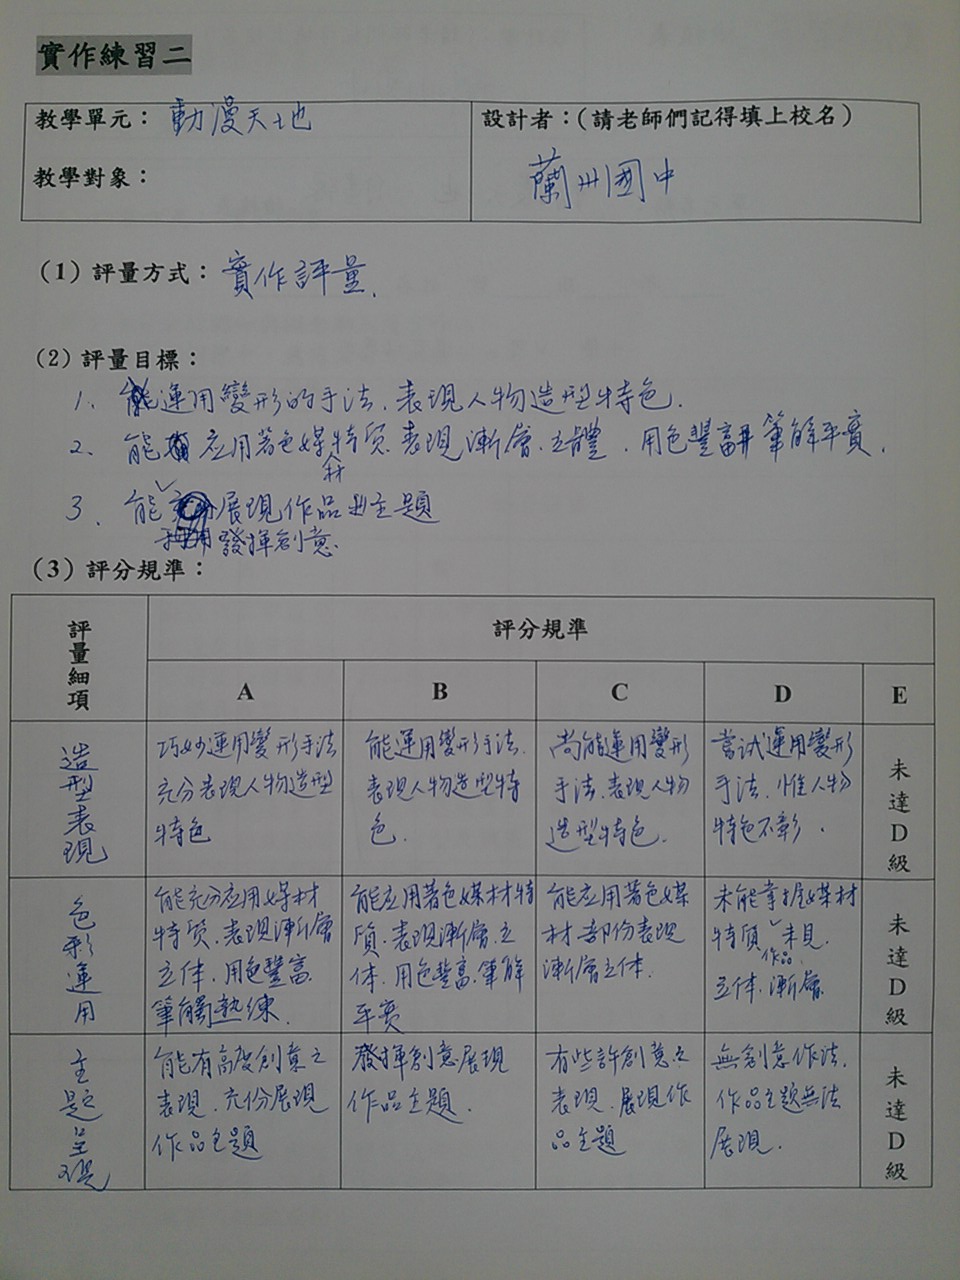 實作練習二
教學單元：動漫天地
設計者：(請老師們記得填上校名)
教學對象：
蘭州國中
(1) 評量方式：實作評量.
(2) 評量目標：
1. 能運用變形的手法.表現人物造型特色.
2. 能應用著色媒材特質.表現漸層.立體.用色豐富 筆觸平實.
3. 能展現作品主題
發揮創意.
(3) 評分規準：
評量細項
評分規準
A B C D E
造型表現
巧妙運用變形手法
充分表現人物造型
特色
能運用變形手法.
表現人物造型特
色.
尚能運用變形
手法.表現人物
造型特色.
嘗試運用變形
手法.惟人物
特色不彰.
未達D級
色彩運用
能充分應用媒材
特質.表現漸層
立体.用色豐富
筆觸熟練.
能應用著色媒材特
質.表現漸層.立
体.用色豐富.筆觸
平實
能應用著色媒
材部份表現
漸層立体.
未能掌握媒材
特質.作品未見
立体.漸層
未達D級
主題呈現
能有高度創意之
表現.充份展現
作品主題
發揮創意展現
作品主題.
有些許創意之
表現.展現作
品主題
無創意作法.
作品主題無法
展現.
未達D級